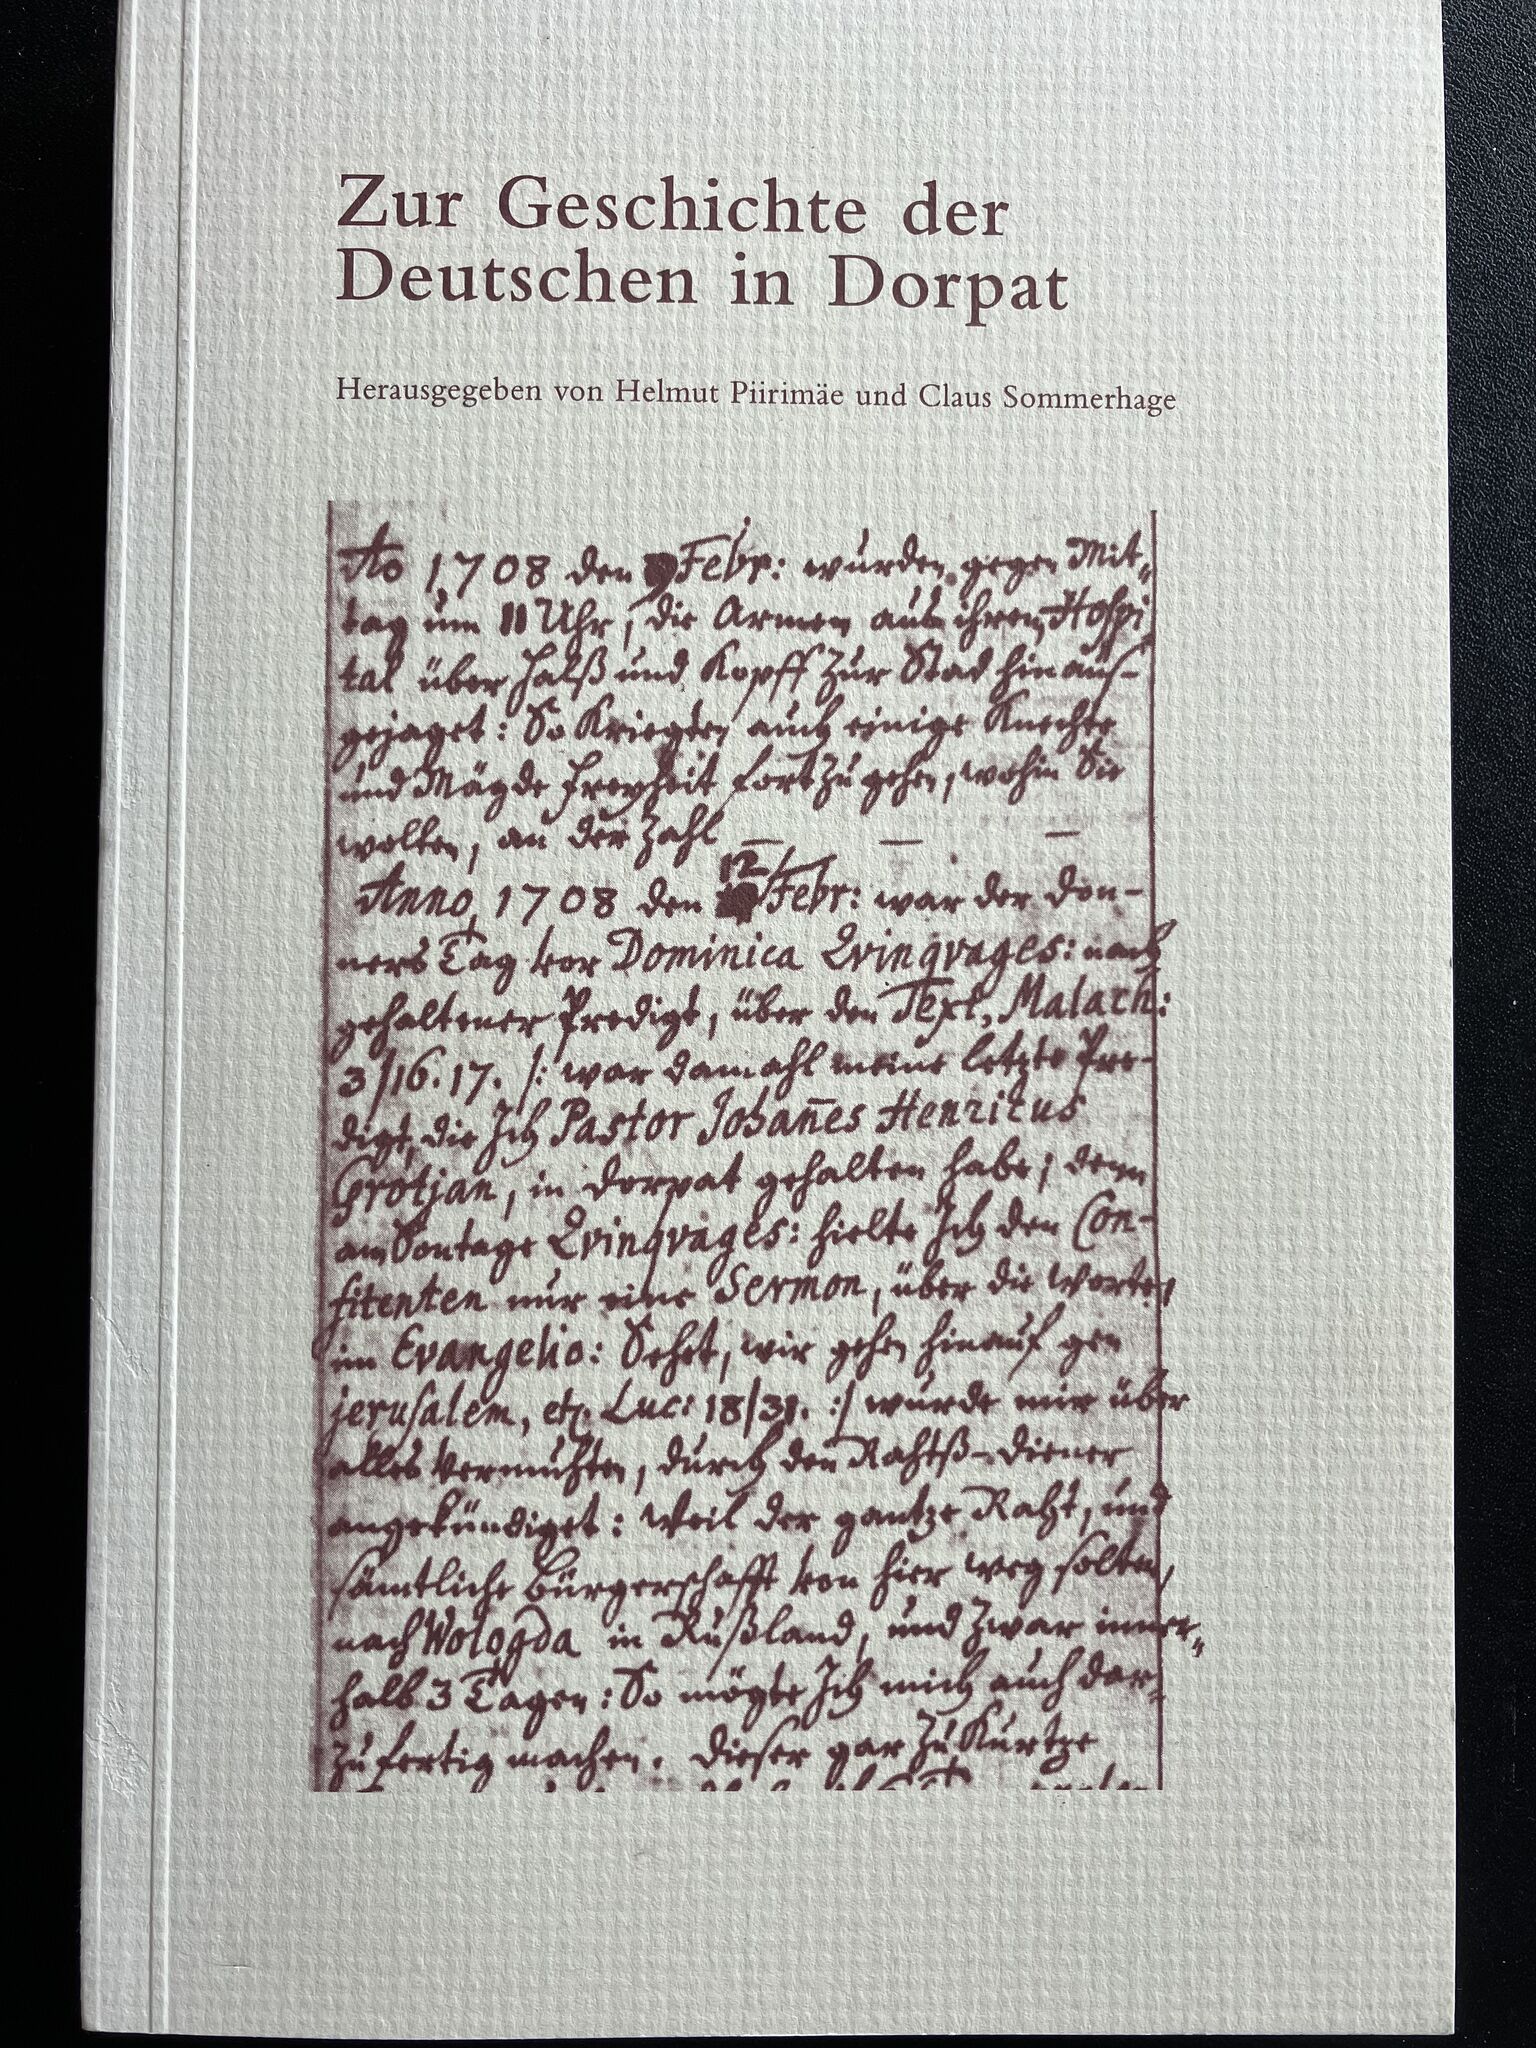 Zur Geschichte der
Deutschen in Dorpat
Herausgegeben von Helmut Piirimäe und Claus Sommerhage
Ao 1708 den 9 Febr: wurden gegen Mit-
tag um 11 Uhr, die Armen aus ihren Hospi
tal über Halß und Kopff zur Stad hinaus-
gejaget: So kriegten auch einige Knechte
und Mägde Freyheit fortzugehen, wohin Sie
wolten, an der Zahl — — —
Anno 1708 den 12 Febr: war der Don-
ners Tag vor Dominica Qvinqvages: nach
gehaltener Predigt, über den Text, Malach:
3/16.17. /: war damahl meine letzte Pre-
digt, die Ich Pastor Johañes Henricus
Grotjan, in Dorpat gehalten habe; denn
am Sontage Qvinqvages: hielte Ich den Con-
fitenten nur eine Sermon, über die Worte,
im Evangelio: Sehet, wir gehen hinauf gen
Jerusalem, etc. Luc: 18/31. :/ wurde mir über
alles vermuhten, durch den Rahtß-diener
angekündiget: Weil der gantze Raht, und
sämtliche Bürgerschafft von hier weg solten,
nach Wologda in Rußland, und zwar inner-
halb 3 Tagen: So mögte Ich mich auch dar-
zu fertig machen. Dieser gar zu kurtze